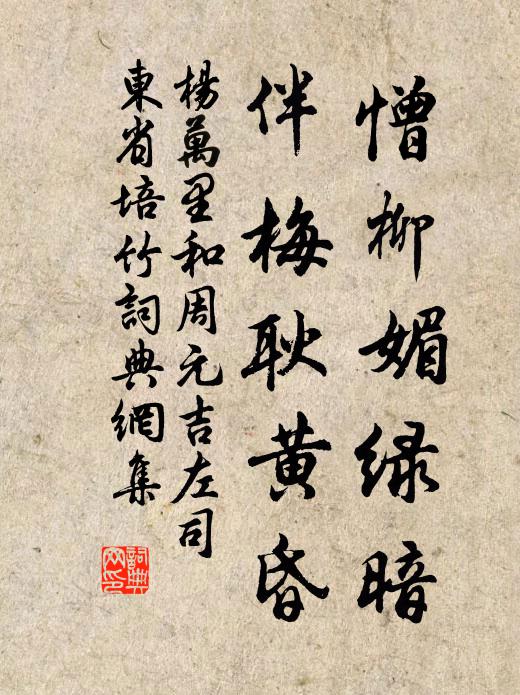 憎柳媚绿暗
伴梅耿黄昏
楊萬里和周元吉左司
東省培竹詞典網集
詞典网印